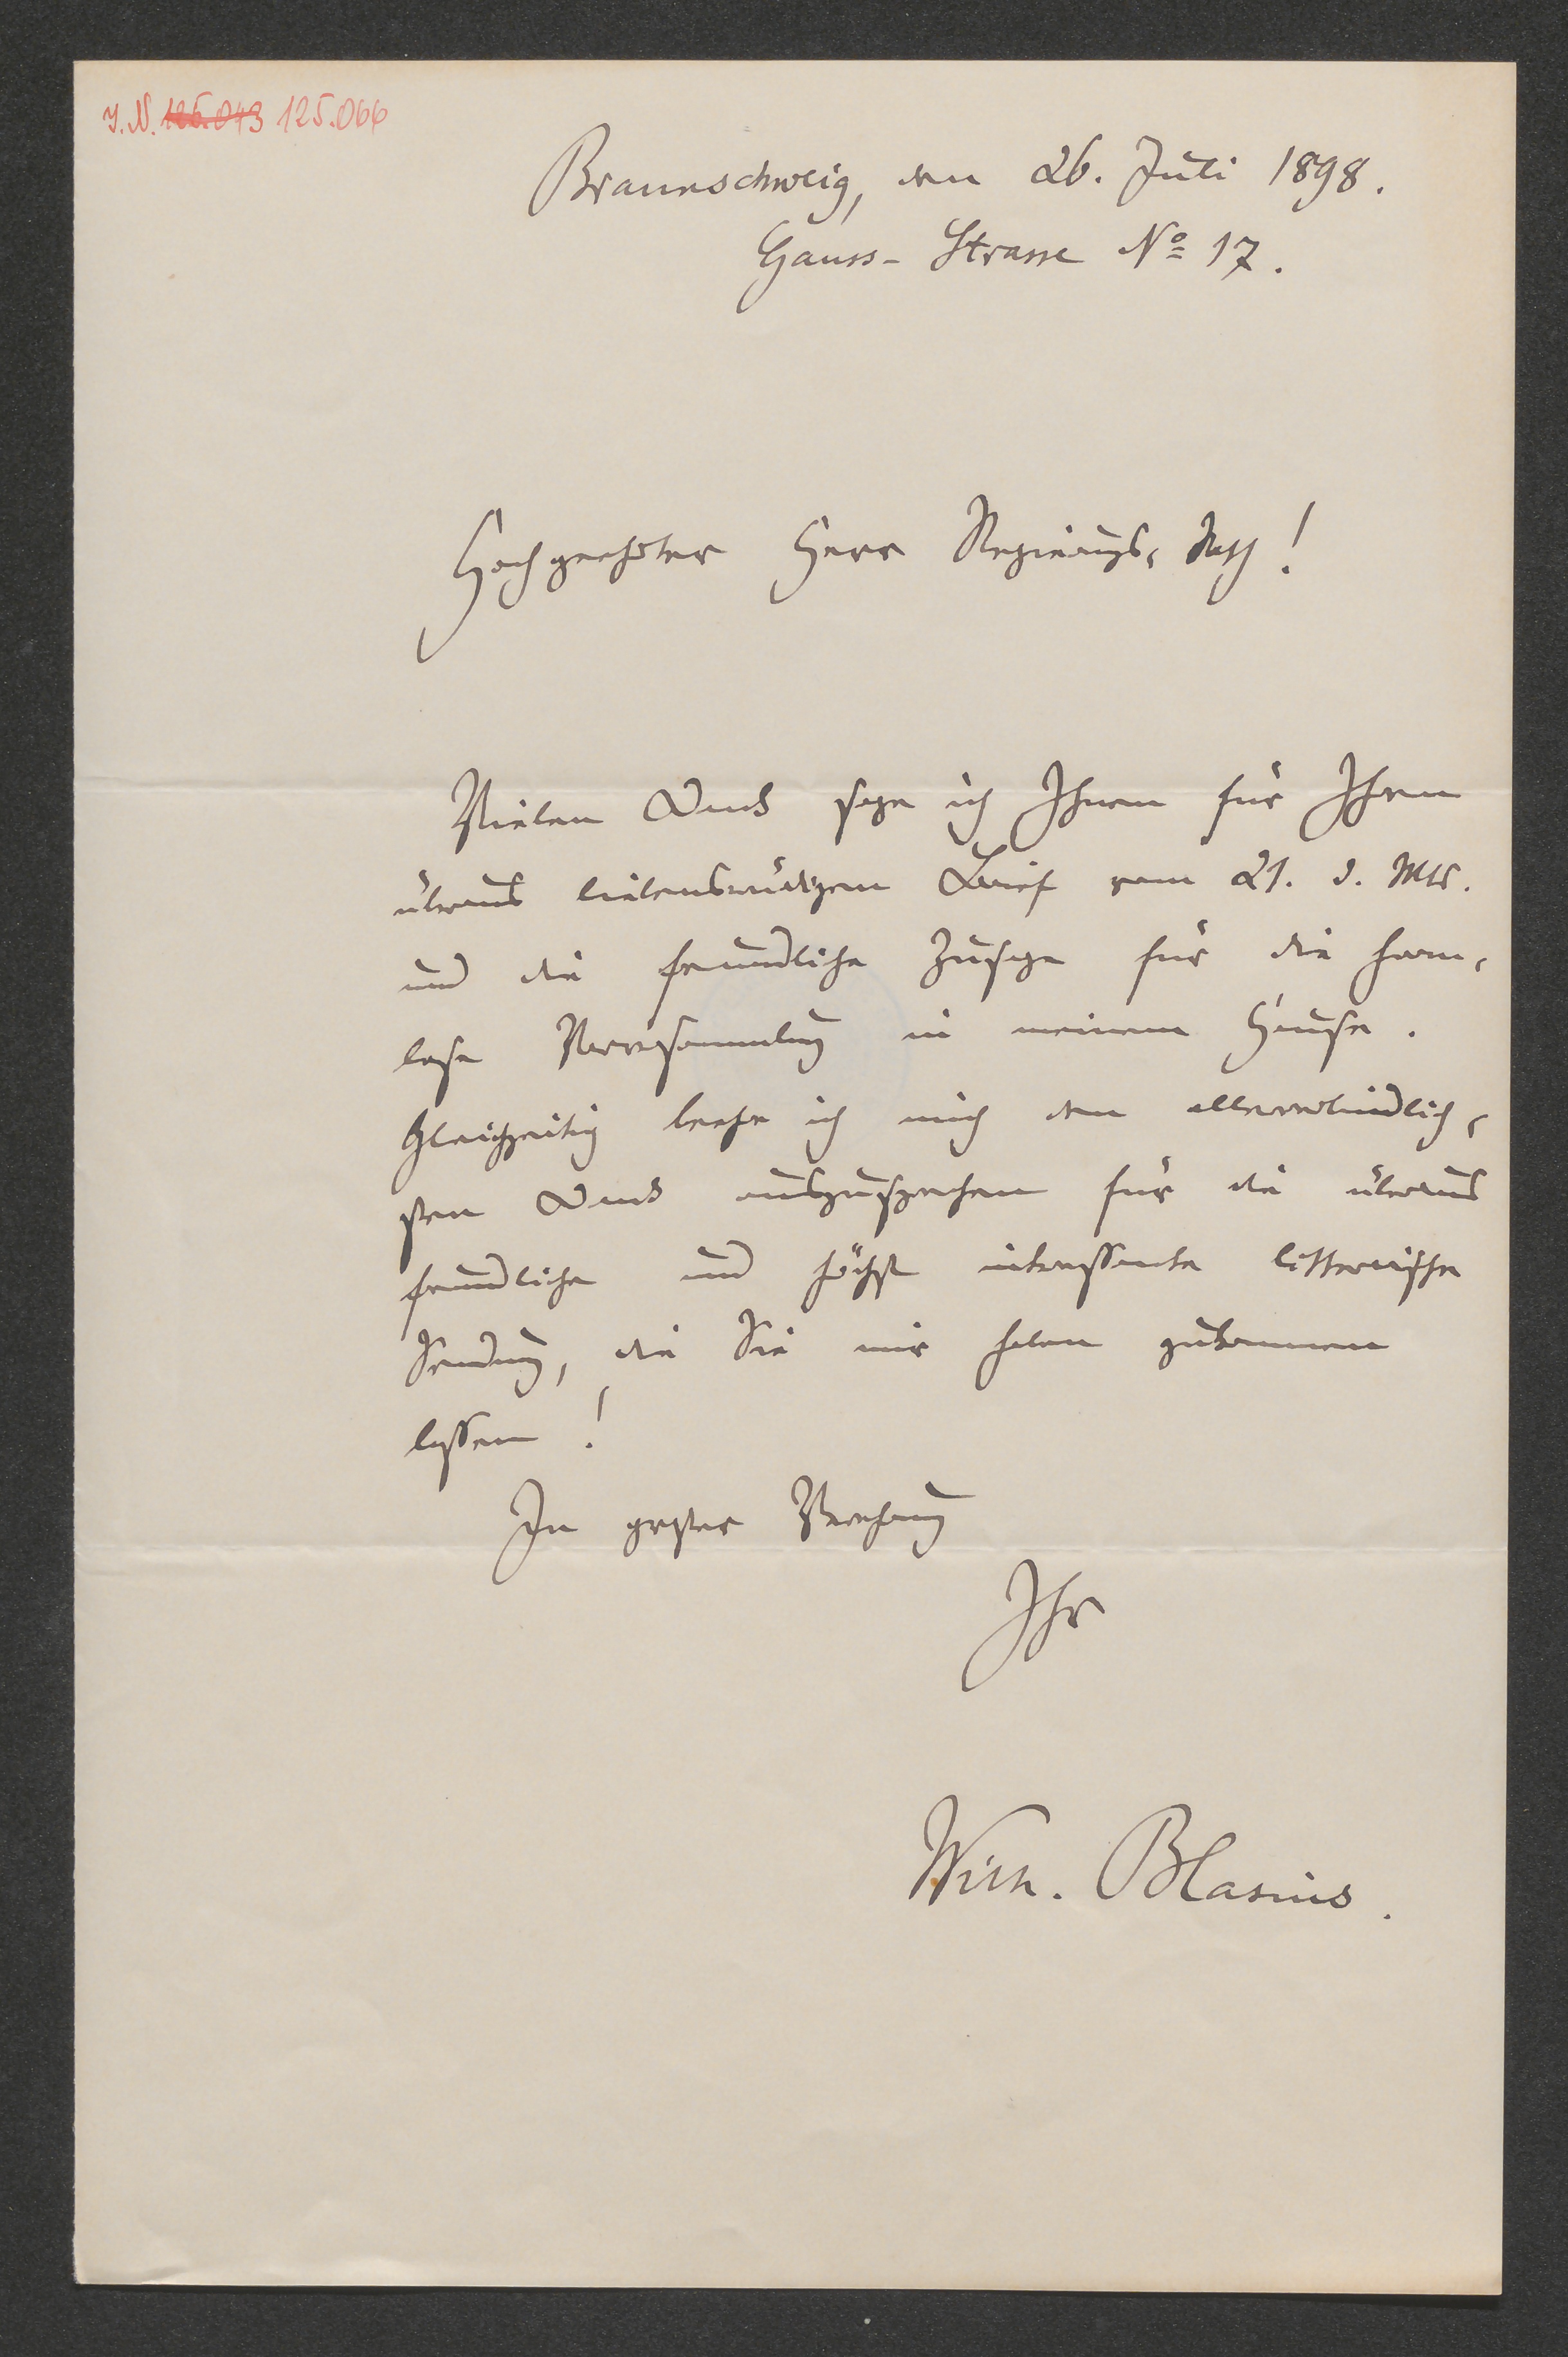 J. N. 125.043 125.066
Braunschweig, den 26. Juli 1898.
Gauss-Strasse No 17.
Hochgeehrter Herr Regierungs-Rath!
Vielen Dank sage ich Ihnen für Ihren
überaus liebenswürdigen Brief vom 21. d. Mts.
und die freundliche Zusage für die harm-
lose Versammlung in meinem Hause.
Gleichzeitig beehre ich mich den allerverbindlich-
sten Dank auszusprechen für die überaus
freundliche und höchst interessante litterarische
Sendung, die Sie mir haben zukommen
lassen!
In grosser Verehrung
Ihr
Wilh. Blasius.